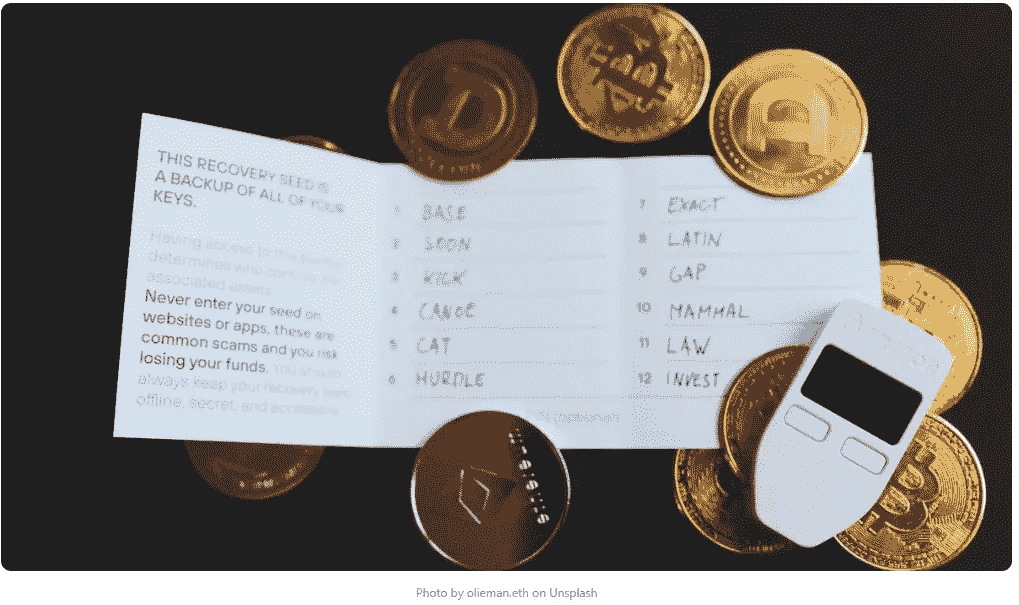 THIS RECOVERY SEED IS
A BACKUP OF ALL OF YOUR
KEYS.
Having access to this
determines who controls the
associated assets.
Never enter your seed on
websites or apps, these are
common scams and you risk
losing your funds. You should
always keep your recovery seed
offline, secret, and accessible.
1 BASE
2 SOON
3 KICK
4 CANOE
5 CAT
6 HURDLE
7 EXACT
8 LATIN
9 GAP
10 MAMMAL
11 LAW
12 INVEST
(optional)
Photo by olieman.eth on Unsplash